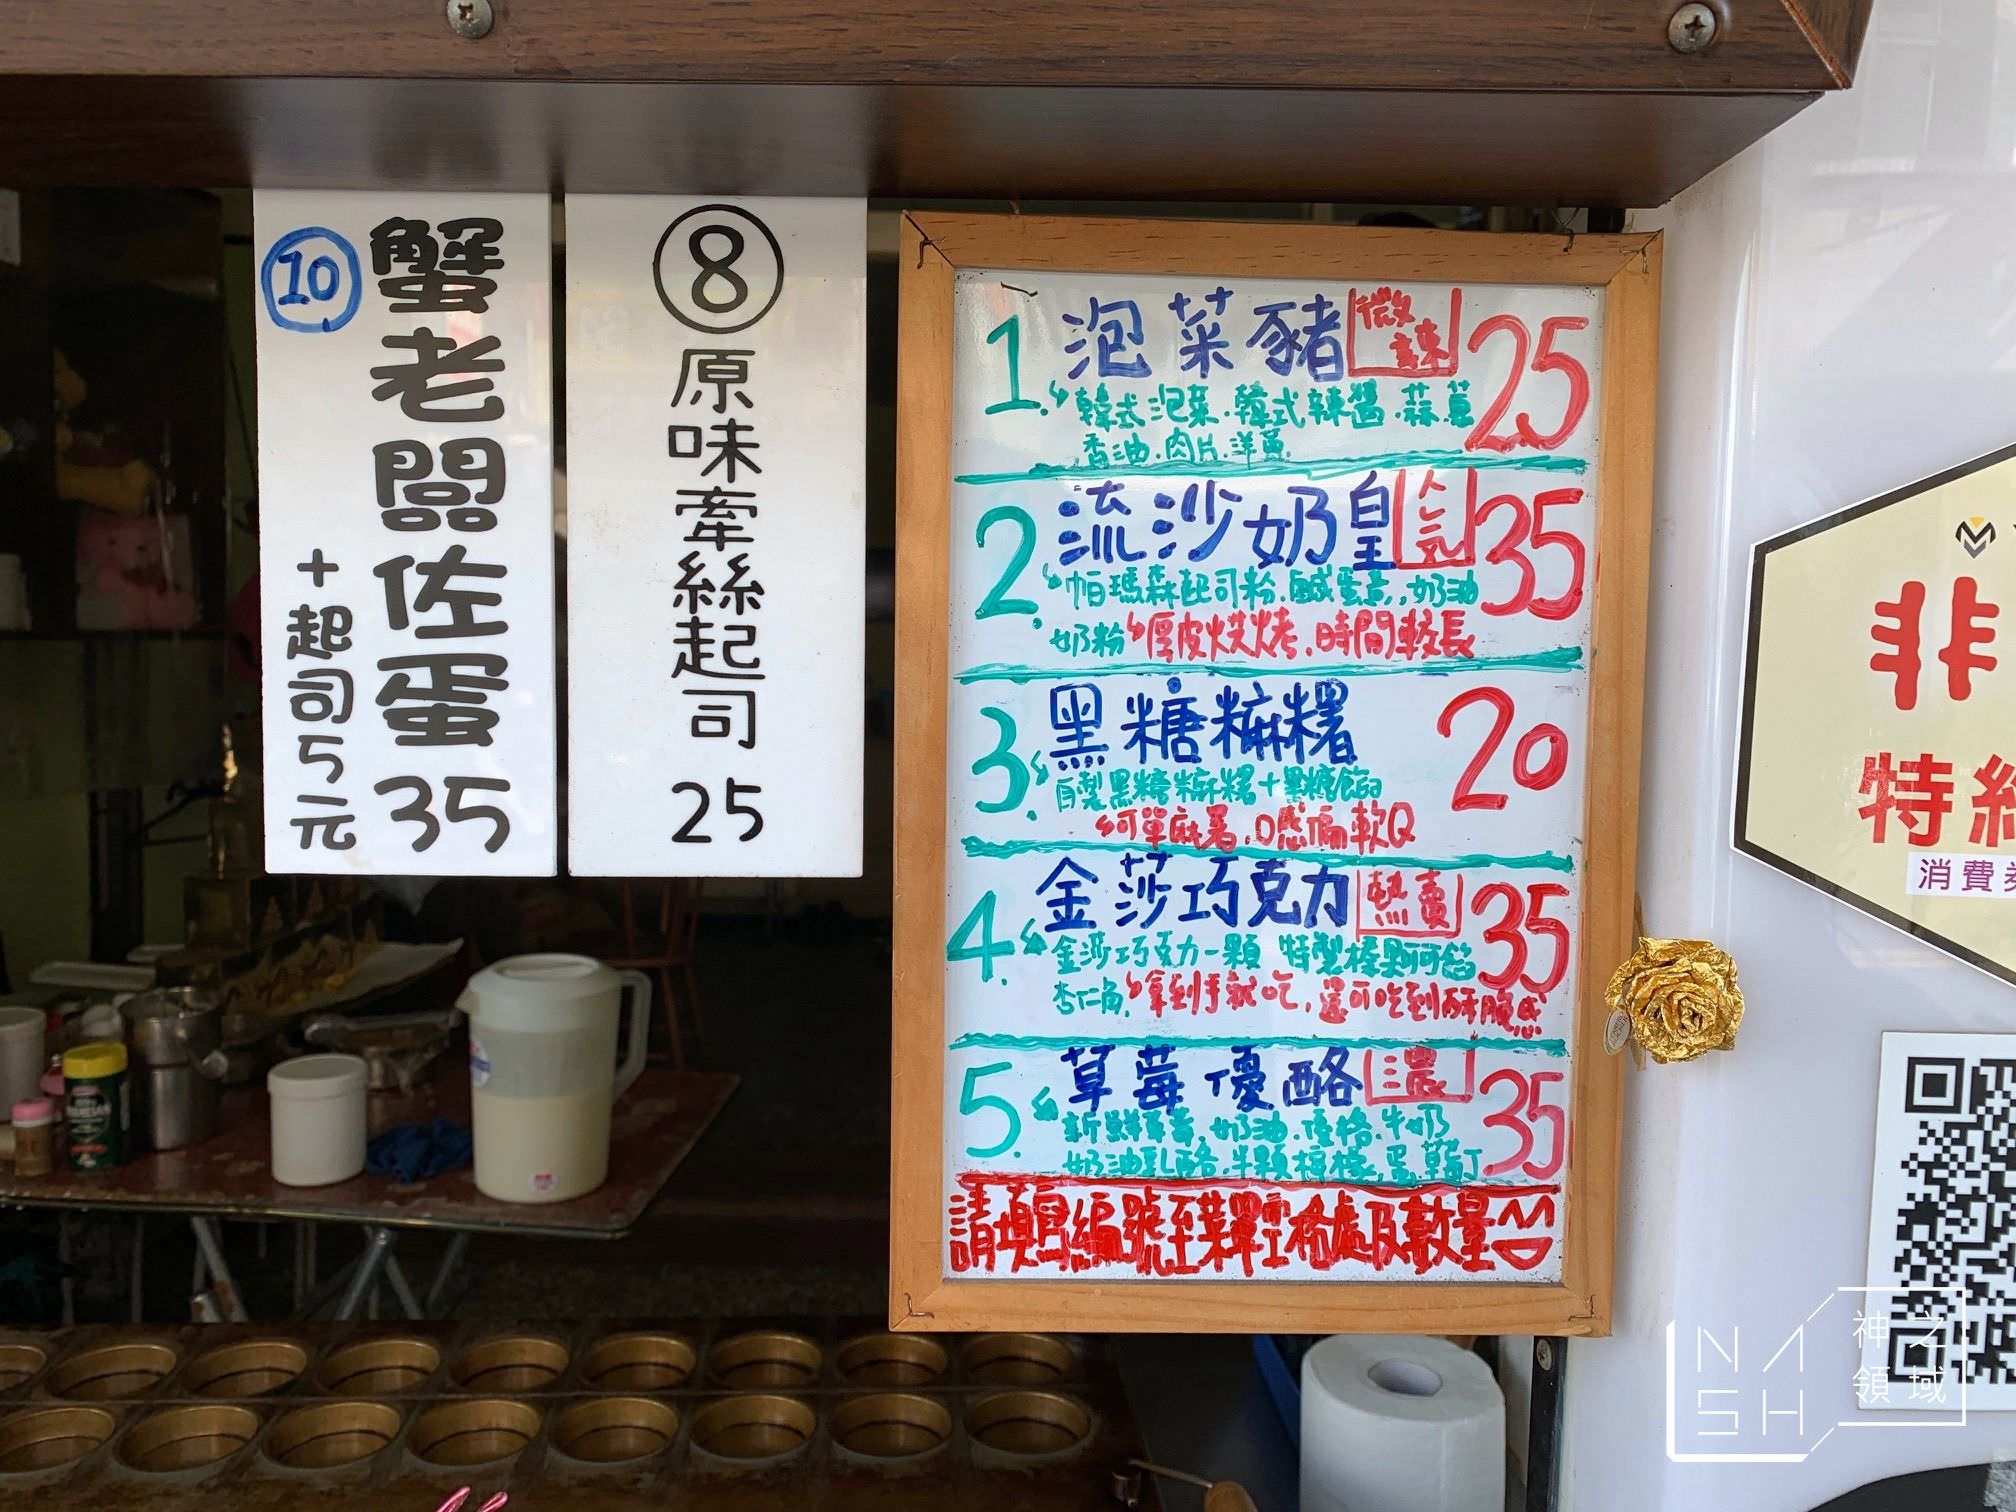 ⑩
蟹老闆佐蛋 35
+起司5元
⑧
原味牽絲起司 25
1. 泡菜豬 微辣 25
韓式泡菜.韓式辣醬.蒜.蔥
香油.肉片.洋蔥
2. 流沙奶皇 人氣 35
帕瑪森起司粉.鹹蛋黃,奶油
奶粉 厚皮烘烤,時間較長
3. 黑糖糍糬 20
自製黑糖糍糬+黑糖餡
可單麻署,口感偏軟Q
4. 金莎巧克力 熱賣 35
金莎巧克力一顆 特製榛果可可餡
杏仁角, 拿到手就吃,還可吃到酥脆感
5. 草莓優酪 濃 35
新鮮草莓,奶油.優格.牛奶
奶油乳酪.半顆檸檬,
請填寫編號至菜單空格處及數量
非
特
消費券
NASH
神之
領域